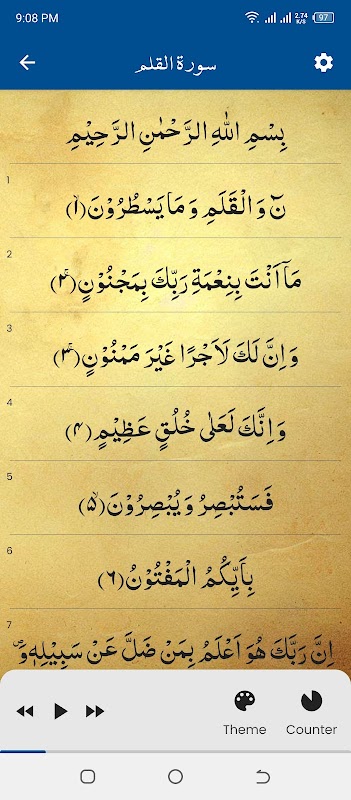 9:08 PM 2.74 K/S 97
سورة القلم
بِسْمِ اللهِ الرَّحْمٰنِ الرَّحِيْمِ
1
نٓ وَالْقَلَمِ وَمَا يَسْطُرُوْنَ(۱)ۙ
2
مَاۤ اَنْتَ بِنِعْمَةِ رَبِّكَ بِمَجْنُوْنٍ(۲)ۚ
3
وَاِنَّ لَكَ لَاَجْرًا غَيْرَ مَمْنُوْنٍ(۳)ۚ
4
وَاِنَّكَ لَعَلٰى خُلُقٍ عَظِيْمٍ(۴)
5
فَسَتُبْصِرُ وَيُبْصِرُوْنَ(۵)ۙ
6
بِاَيِّكُمُ الْمَفْتُوْنُ(۶)
7
اِنَّ رَبَّكَ هُوَ اَعْلَمُ بِمَنْ ضَلَّ عَنْ سَبِيْلِهٖ۪ وَ
Theme Counter